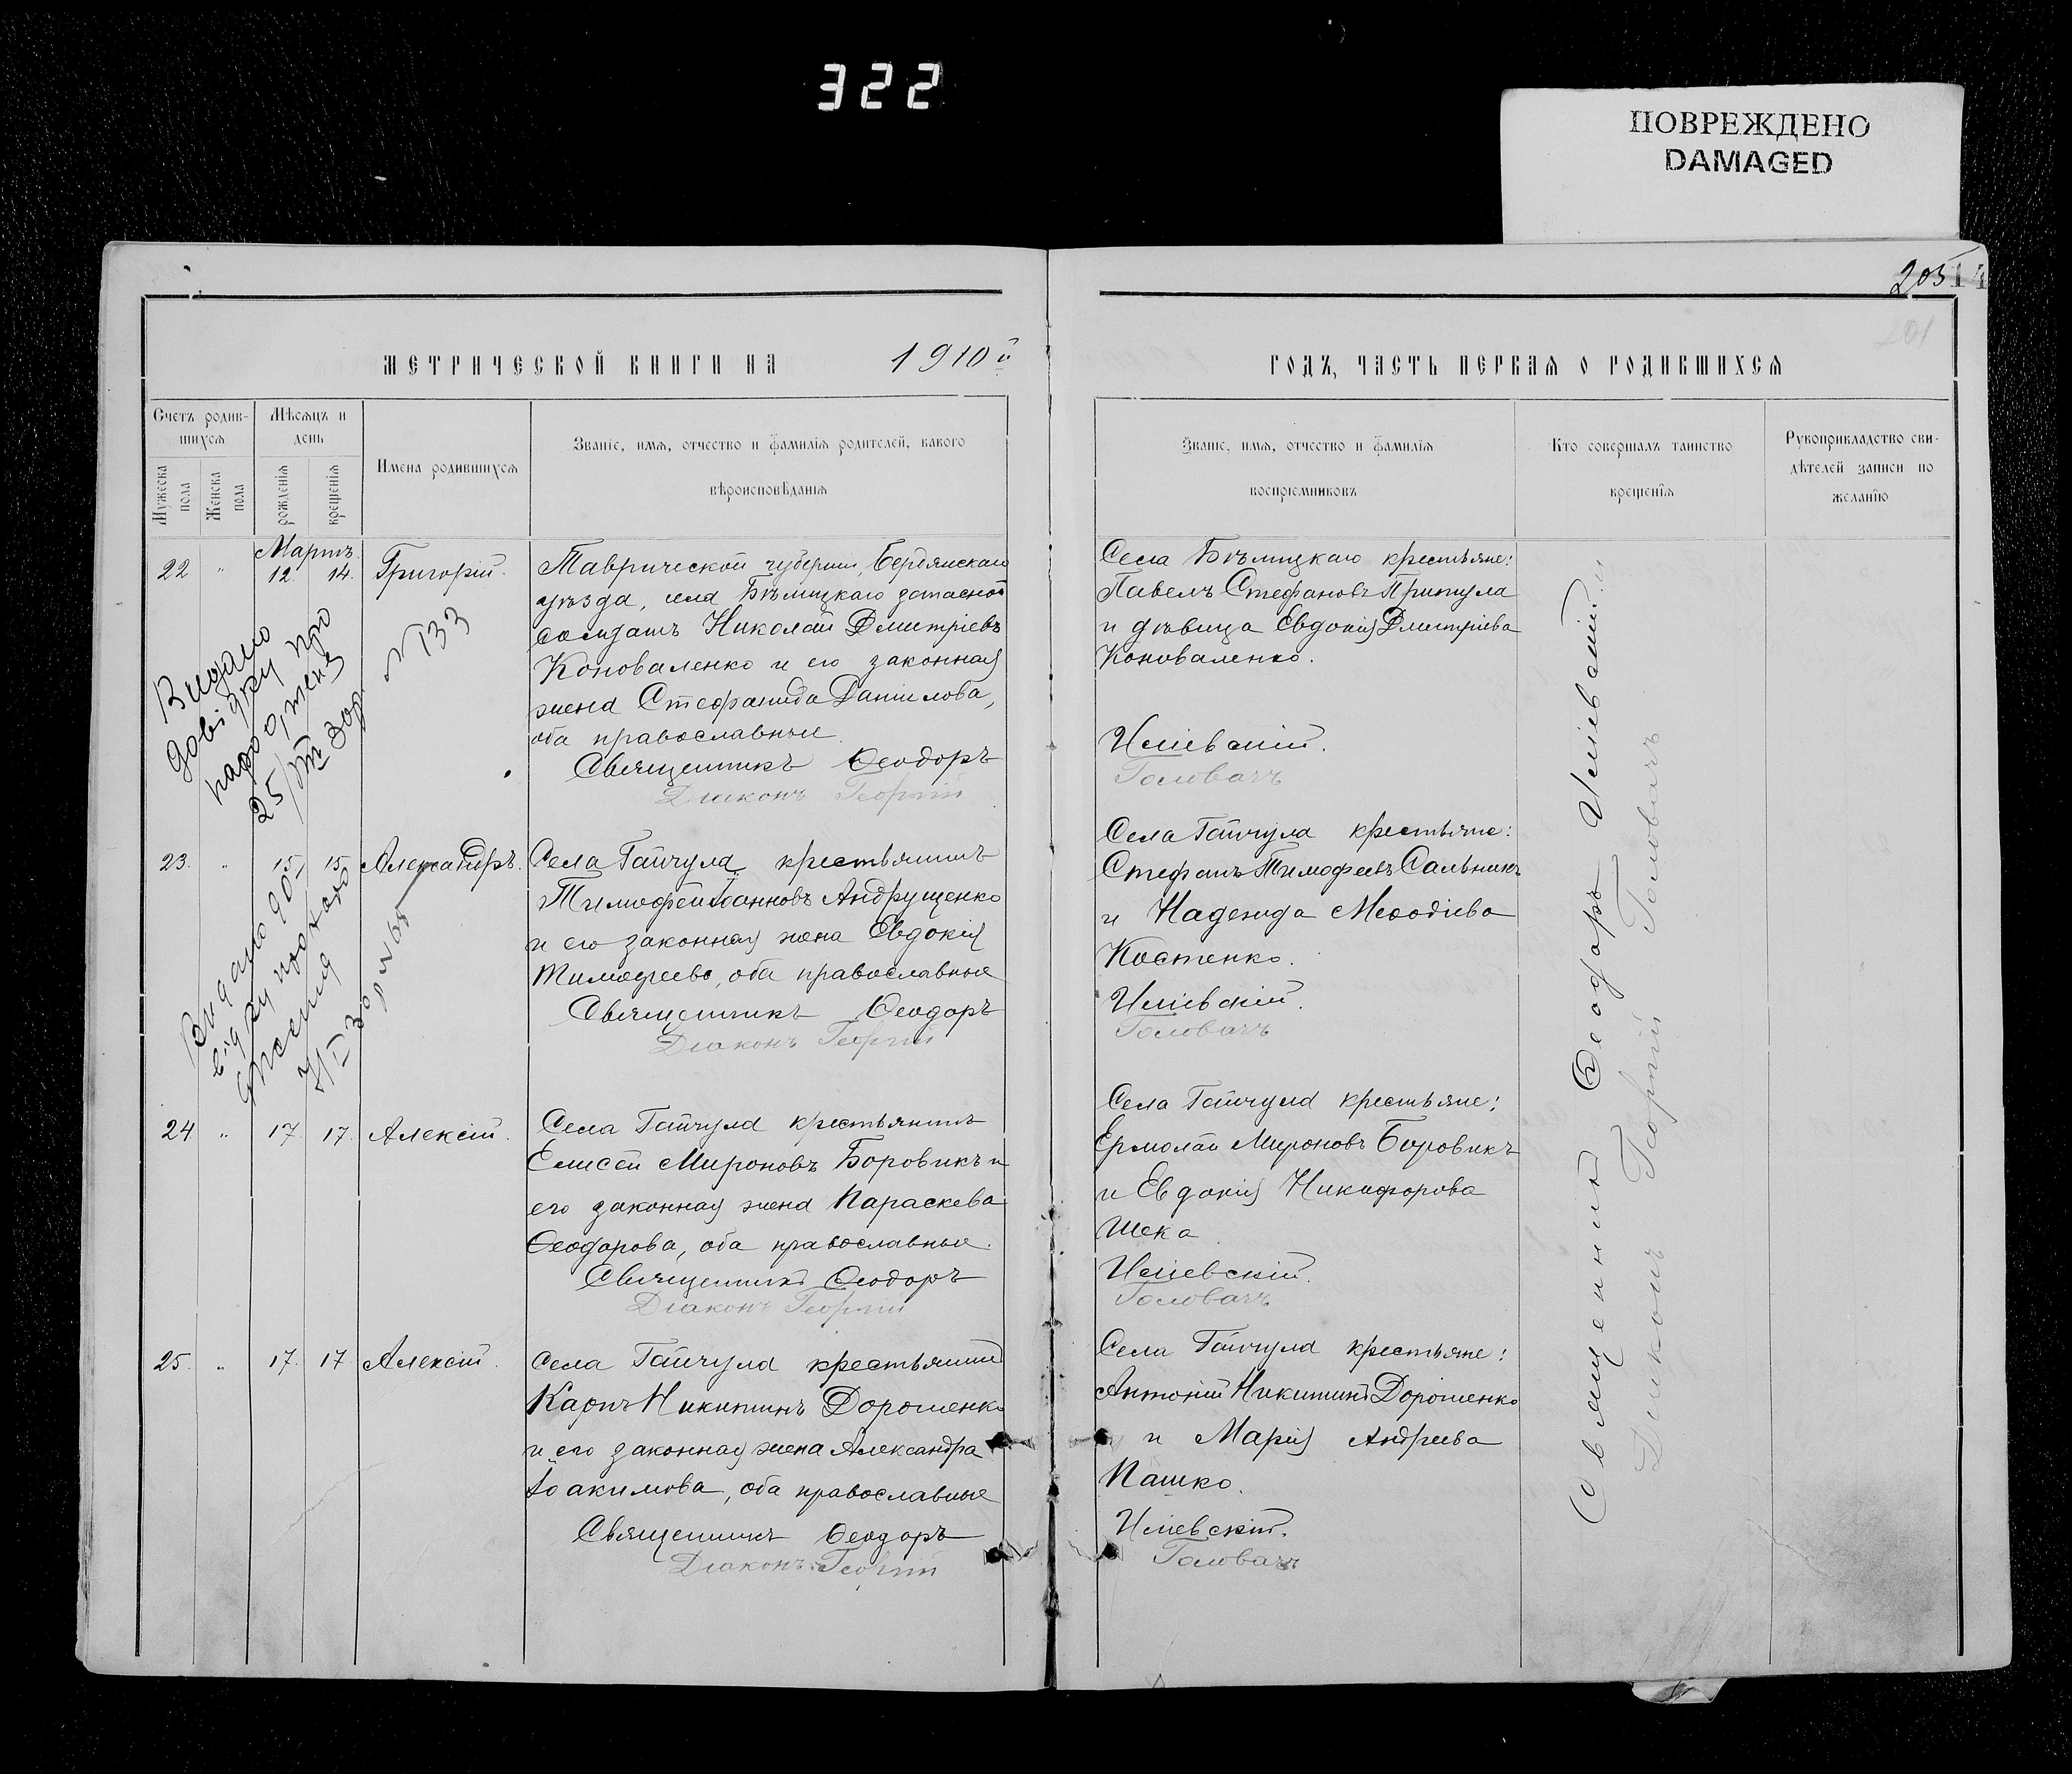 322
ПОВРЕЖДЕНО
DAMAGED
205
201
МЕТРИЧЕСКОЙ КНИГИ НА 1910й
ГОДЪ, ЧАСТЬ ПЕРВАЯ О РОДИВШИХСЯ
Счетъ родив-
шихся
Мужеска пола
Женска пола
Мѣсяцъ и
день
рожденія
крещенія
Имена родившихся
Званіе, имя, отчество и фамилія родителей, какого
вѣроисповѣданія
Званіе, имя, отчество и фамилія
воспріемниковъ
Кто совершалъ таинство
крещенія
Рукоприкладство сви-
дѣтелей записи по
желанію
Мартъ
22 " 12. 14. Григорій.
Таврической губерніи, Бердянскаго
уѣзда, села Бѣлицкаго запасной
солдатъ Николай Дмитріевъ
Коноваленко и его законная
жена Стефанида Даніилова,
оба православные.
Священникъ Ѳеодоръ
Діаконъ Георгій
Села Бѣлицкаго крестьяне:
Павелъ Стефановъ Притула
и дѣвица Евдокія Дмитріева
Коноваленко.
Иліевскій.
Головачъ
Видано
довідку про
народження
25/VIII 30р. №133
23. " 15 15 Александръ.
Села Гайчула крестьянинъ
Тимофей Іоанновъ Андрущенко
и его законная жена Евдокія
Тимофеева, оба православные
Священникъ Ѳеодоръ
Діаконъ Георгій
Села Гайчула крестьяне:
Стефанъ Тимофеевъ Сальникъ
и Надежда Меѳодіева
Костенко.
Иліевскій.
Головачъ
Видано
24 " 17. 17. Алексій.
Села Гайчула крестьянинъ
Елисей Мироновъ Боровикъ и
его законная жена Параскева
Ѳеодорова, оба православные.
Священникъ Ѳеодоръ
Діаконъ Георгій
Села Гайчула крестьяне:
Ермолай Мироновъ Боровикъ
и Евдокія Никифорова
Шека
Иліевскій.
Головачъ
25. " 17. 17 Алексій.
Села Гайчула крестьянинъ
Карпъ Никитинъ Дорошенко
и его законная жена Александра
Іоакимова, оба православные
Священникъ Ѳеодоръ
Діаконъ Георгій
Села Гайчула крестьяне:
Антоній Никитинъ Дорошенко
и Марія Андреева
Пашко.
Иліевскій.
Головачъ
Священникъ Ѳеодоръ Иліевскій
Діаконъ Георгій Головачъ